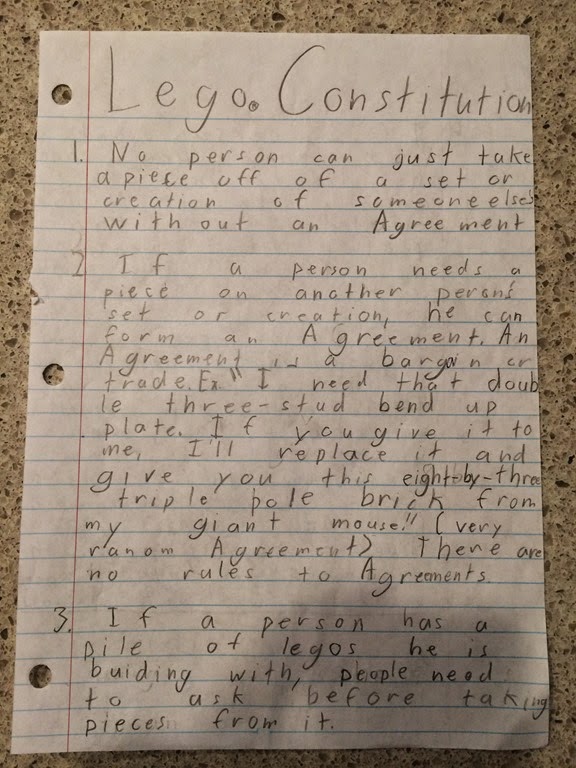 Lego. Constitution
1. No person can just take
a piece off of a set or
creation of someone else's
with out an Agree ment
2. If a person needs a
piece on another perons'
set or creation, he can
form an Agreement. An
Agreement is a bargain or
trade. Ex. " I need that doub
le three-stud bend up
plate. If you give it to
me, I'll replace it and
give you this eight-by-three
triple pole brick from
my giant mouse!" (very
ranom Agreement) There are
no rules to Agreements.
3. If a person has a
pile of legos he is
buiding with, people need
to ask before taking
pieces from it.